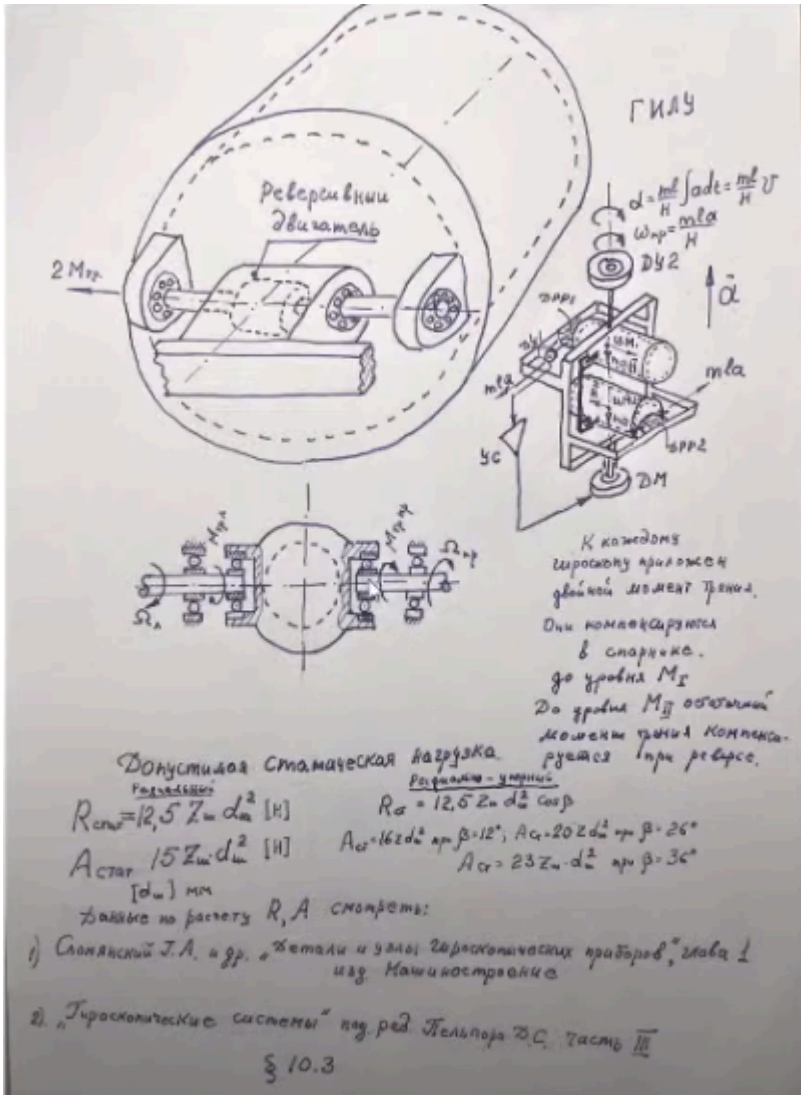 ГИЛУ
Реверсивный
двигатель
2 Mтр.
α = ml/H ∫adt = ml/H V
ωпр = mla/H
ДУ2
ДРР1
ДУ1
ā
mla
mla
УС
ДРР2
ДМ
Mтр.л
Mтр.пр
Ωл
Ωпр
К каждому
гироскопу приложен
двойной момент трения.
Они компенсируются
в спарнике.
до уровня M_I
До уровня M_II остаточный
моменты трения компенси-
руется при реверсе.
Допустимая статическая нагрузка.
Радиальный
Rстат = 12,5 Zш dш² [Н]
Aстат 15 Zш · dш² [Н]
[dш] мм
Радиально-упорный
Rст = 12,5 Zш dш² cosβ
Aст = 16 Z dш² при β=12°; Aст = 20 Z dш² при β = 26°
Aст = 23 Zш · dш² при β = 36°
Данные по расчету R, A смотреть:
1) Слонянский Г.А. и др. „Детали и узлы гироскопических приборов", глава 1
изд. Машиностроение
2). „Гироскопические системы" под ред. Пельпора Д.С. часть III
§ 10.3